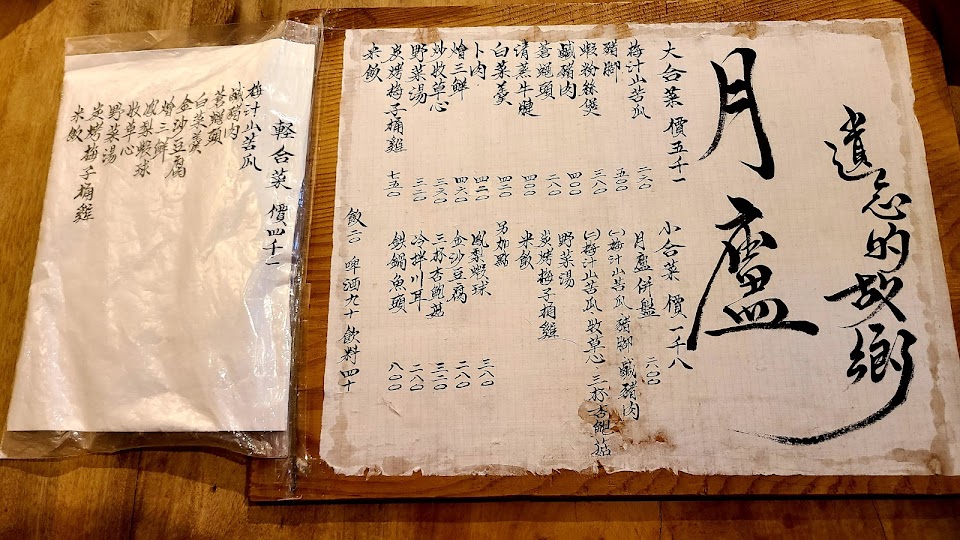 遺忘的故鄉
月廬
大合菜 價五千一
梅汁山苦瓜 二二〇
豬腳 五〇〇
蝦粉絲煲 三八〇
鹹豬肉 四〇〇
蒼蠅頭 二八〇
清蒸牛腱 四〇〇
白菜羹 二〇〇
卜肉 四二〇
燴三鮮 四六〇
炒牧草心 三二〇
野菜湯 三二〇
炭烤梅子桶雞 七五〇
米飲
小合菜 價一千八
月廬併盤 六〇〇
㈠梅汁山苦瓜 豬腳 鹹豬肉
㈡梅汁山苦瓜 牧草心 三杯杏鮑菇
野菜湯
炭烤梅子桶雞
米飲
另加點
鳳梨蝦球 三八〇
金沙豆腐 二八〇
三杯杏鮑菇 三二〇
冷拌川耳 二八〇
鐵鍋魚頭 八〇〇
飯二〇 啤酒九十 飲料四十
輕合菜 價四千一
梅汁山苦瓜
鹹豬肉
蒼蠅頭
白菜羹
金沙豆腐
燴三鮮
鳳梨蝦球
牧草心
野菜湯
炭烤梅子桶雞
米飲